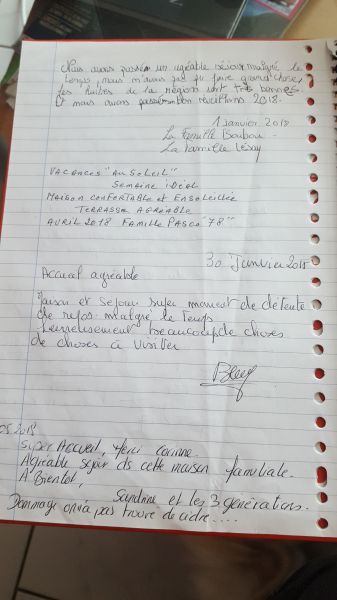 Nous avons passés un agréable séjour malgré le
temps, nous n'avons pas pu faire grand chose,
les huîtres de la région sont très bonnes.
Et nous avons passé un bon réveillons 2018.
1 Janvier 2018
La Famille Boubou
La Famille
VACANCES "AU SOLEIL"
SEMAINE IDÉAL
MAISON CONFORTABLE et ENSOLEILLÉE
TERRASSE AGRÉABLE
AVRIL 2018 FAMILLE PASCO "78"
30 Janvier 2018
Accueil agréable
Maison et Sejour super moment de détente
de repos malgré le temps
heureusement beaucoup de choses
de choses à visiter
05.2018
Super Accueil, Merci Corinne.
Agréable séjour ds cette maison familiale.
A Bientôt,
Sandrine et les 3 générations.
Dommage on n'a pas trouvé de cidre....